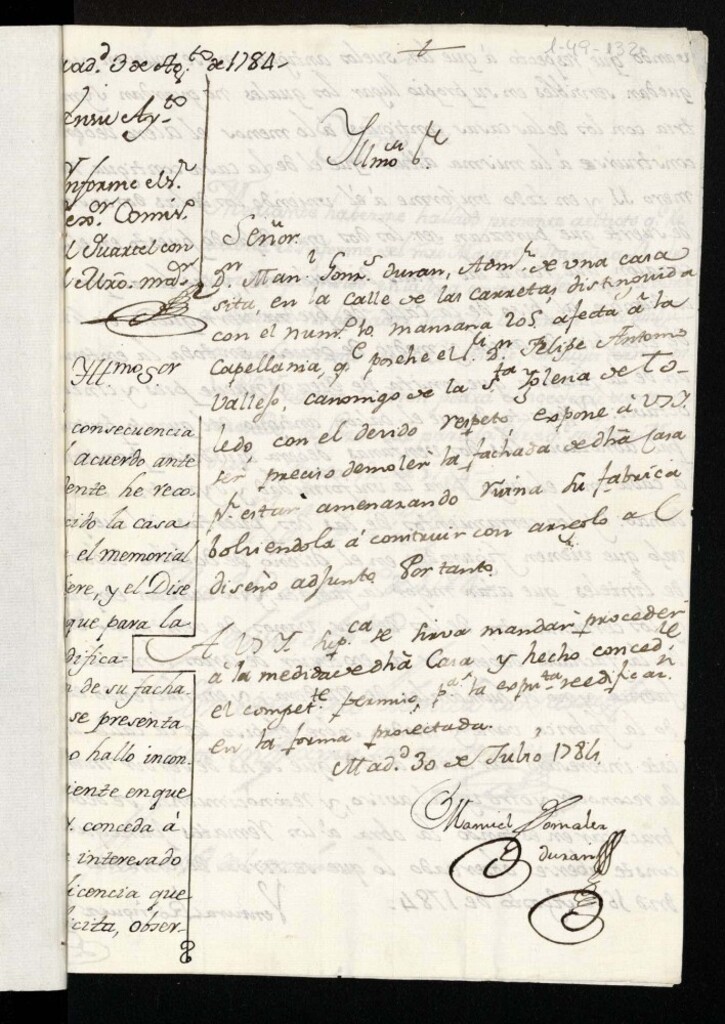 1-49-132
Mad.d 3 de Ag.to de 1784
Ayto
Informe el S.r
Comis.o
el Quartel con
el Mro. mor
Yllmo Señor
consecuencia
acuerdo ante
dente he reco-
cido la casa
el memorial
iere, y el Dise
que para la
difica-
n de su facha-
se presenta
o hallo incon-
iente en que
conceda á
interesado
licencia que
icita, obser-
Yllmo S.r
Señor.
D.n Man.l Gonz.s Duran, Adm.r de una casa
sita, en la calle de las carretas distinguida
con el num.o 10. manzana 205 afecta á la
Capellania, q.e posehe el S.r D.n Felipe Antonio
Vallejo, canonigo de la S.ta Yglesia de To-
ledo, con el devido respeto, expone á V.S.Y.
ser preciso demoler la fachada de dha Casa
p.r estar amenazando ruina su fabrica
bolviendola á construir con arreglo al
diseño adjunto Por tanto.
A V.S.Y. sup.ca se sirva mandar proceder
á la medida de dha Casa y hecho conced.le
el compet.te permiso, p.a la expu.ta reedificar.n
en la forma proiectada.
Mad.d 30 de Julio, 1784
Manuel Gonzalez
Duran